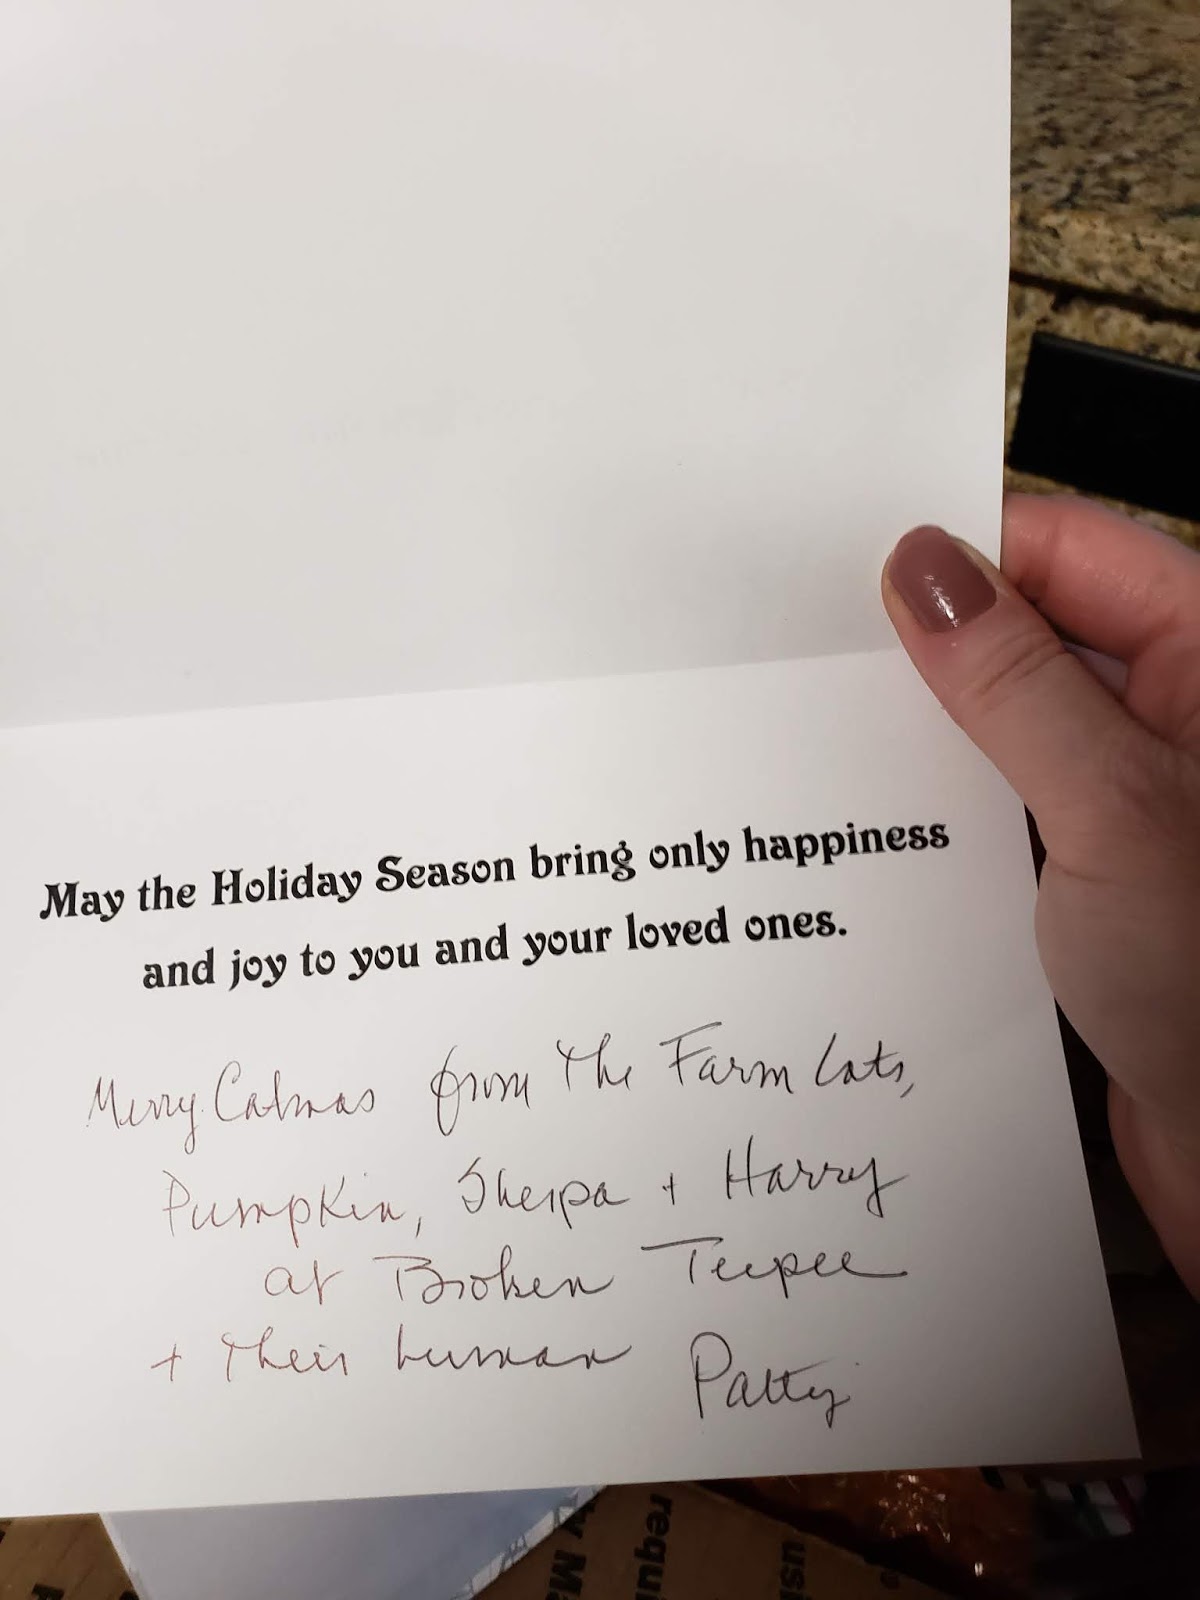 May the Holiday Season bring only happiness
and joy to you and your loved ones.
Merry Catmas from The Farm Cats,
Pumpkin, Sherpa + Harry
at Broken Teepee
+ their human Patty
requi